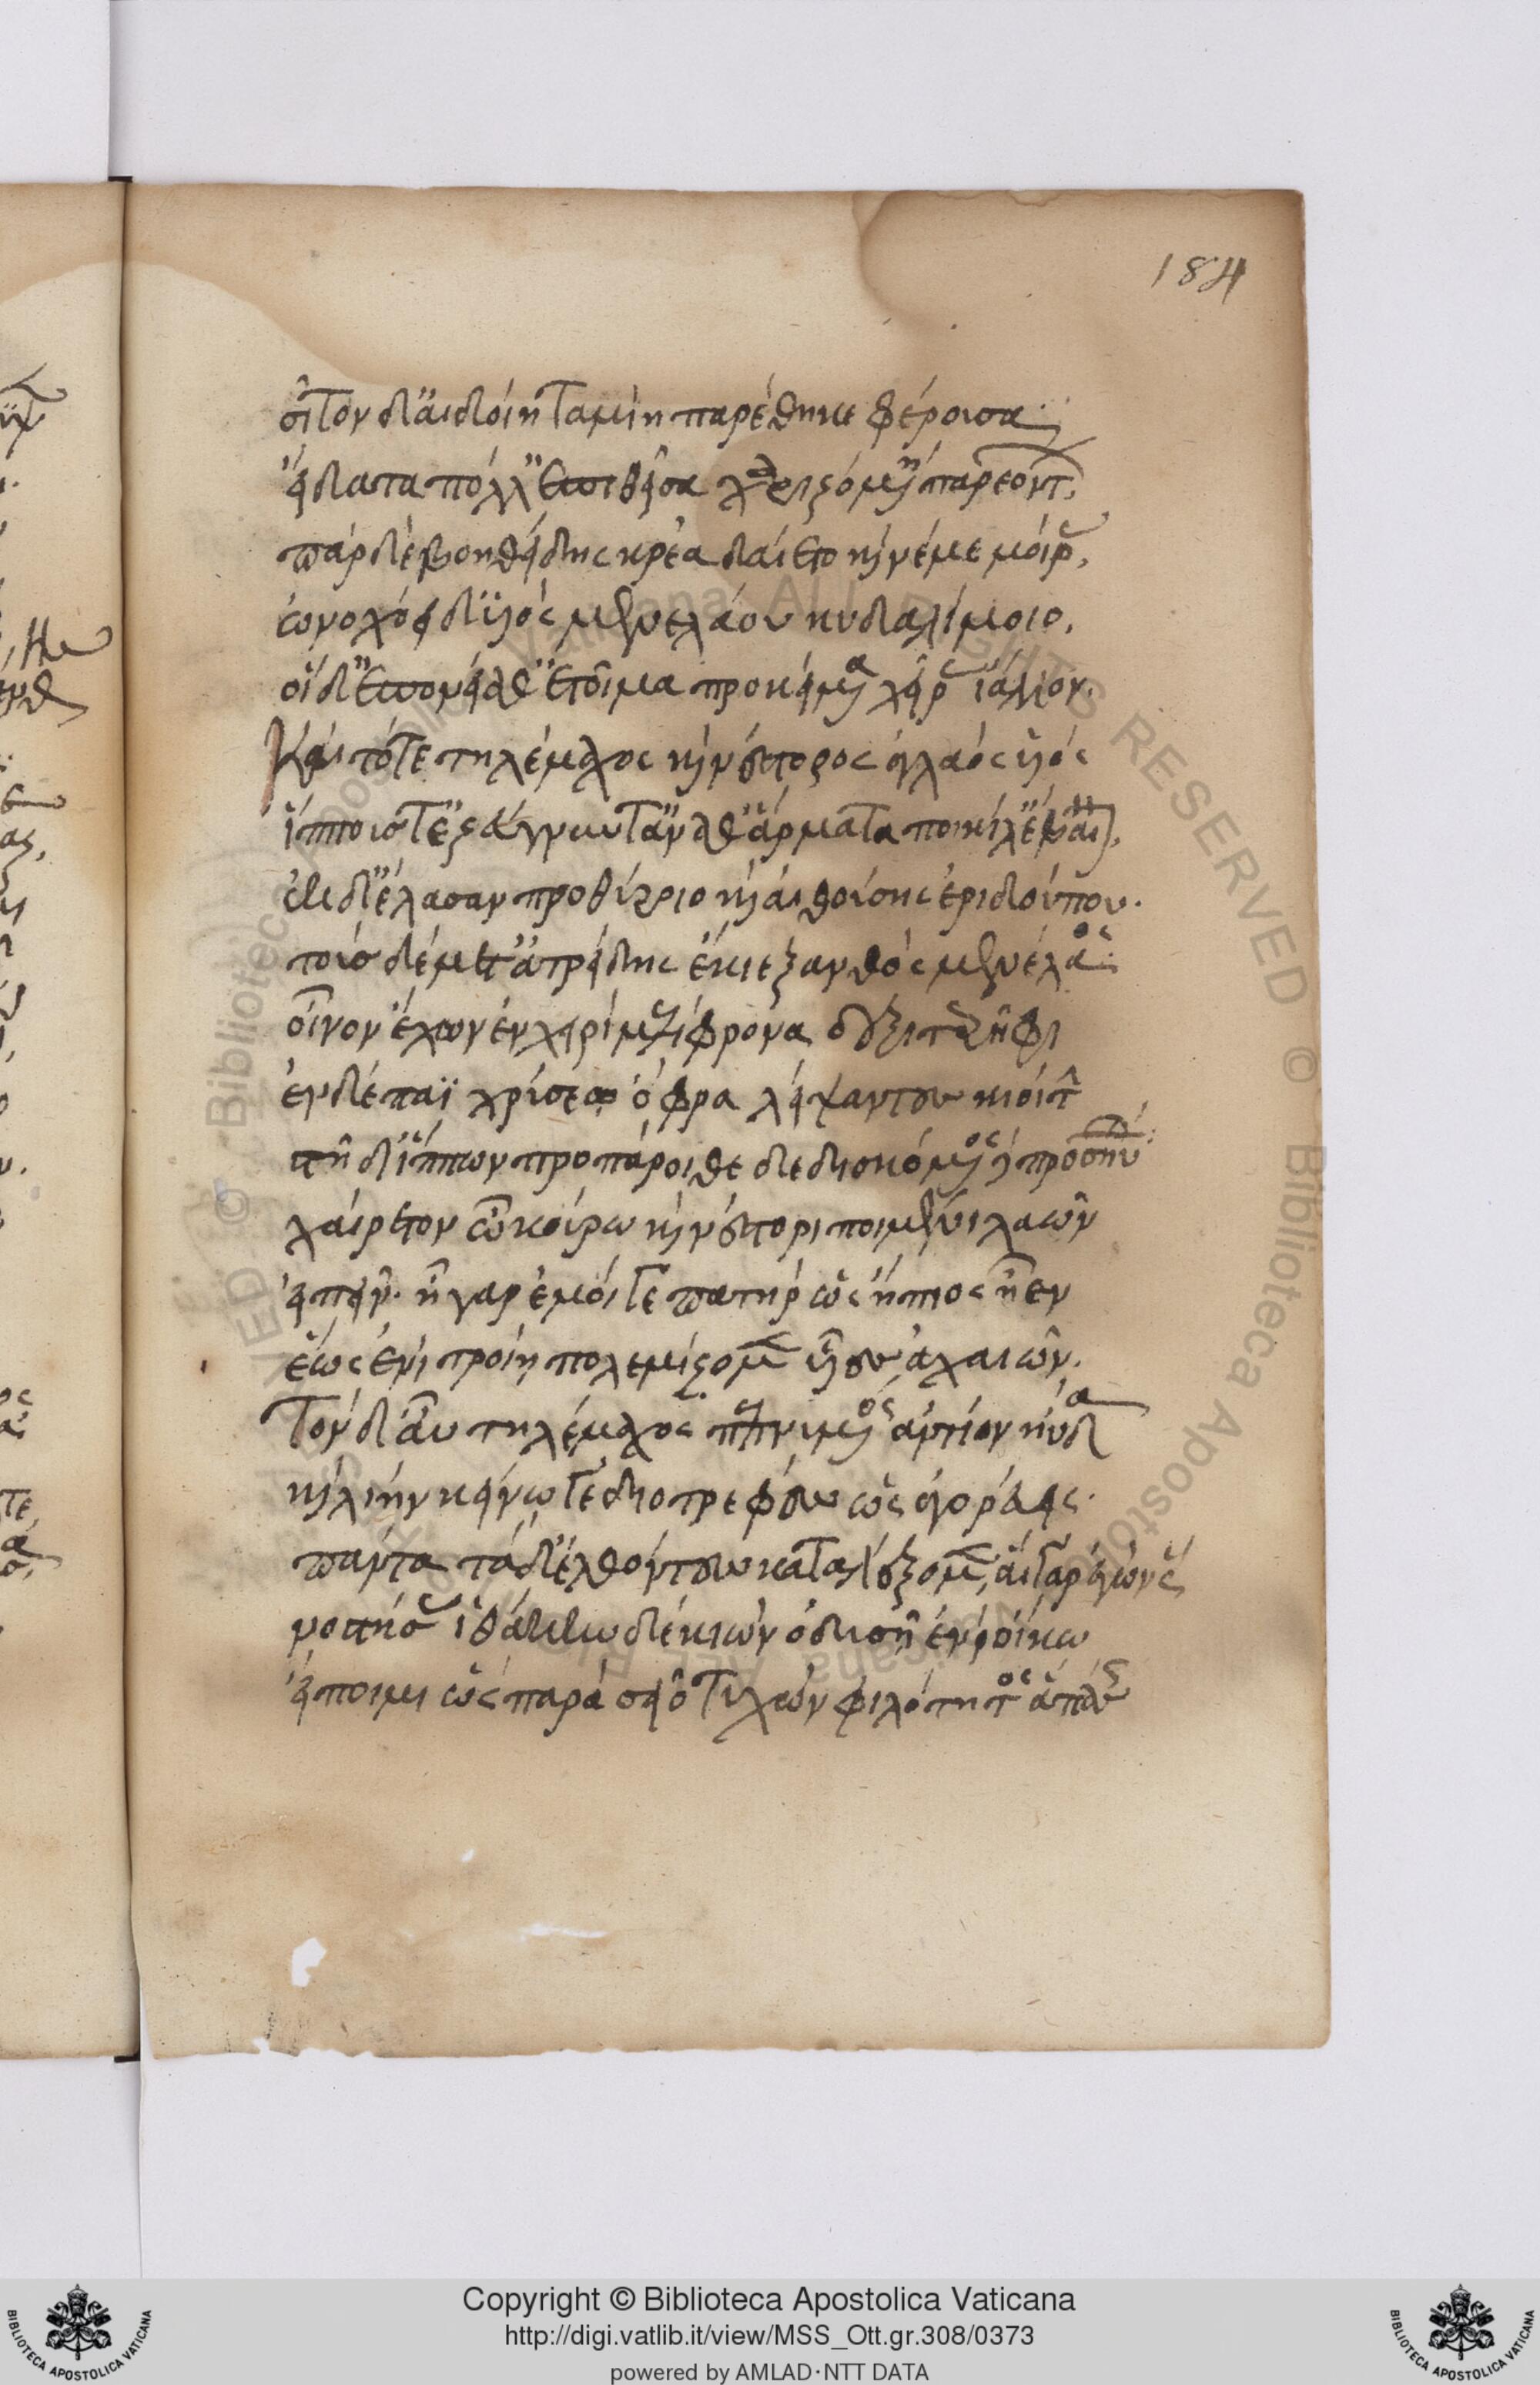 184
σῖτον δ' αἰδοίη ταμίη παρέθηκε φέρουσα·
εἴδατα πόλλ' ἐπιθεῖσα χαριζομένη παρεόντων,
πὰρ δὲ βοηθείδης κρέα δαίετο καὶ νέμε μοίρας,
ὠνοχόει δ' υἱὸς μενελάου κυδαλίμοιο,
οἱ δ' ἐπ' ὀνείαθ' ἑτοῖμα προκείμενα χεῖρας ἴαλλον.
Καὶ τότε τηλέμαχος καὶ νέστορος ἀγλαὸς υἱός
ἵππους τ' ἐζεύγνυντ' ἀνά θ' ἅρματα ποικίλ' ἔβαινον,
ἐκ δ' ἔλασαν προθύροιο καὶ αἰθούσης ἐριδούπου.
τοὺς δὲ μετ' ἀτρείδης ἔκιε ξανθὸς μενέλαος·
οἶνον ἔχων ἐν χειρὶ μελίφρονα δεξιτερῆφι
ἐν δέπαϊ χρυσέῳ ὄφρα λείψαντε κιοίτην
στῆ δ' ἵππων προπάροιθε δεδισκόμενος δὲ προσηύδα·
χαίρετον ὦ κούρω καὶ νέστορι ποιμένι λαῶν
εἰπεῖν· ἦ γὰρ ἐμοί γε πατὴρ ὣς ἤπιος ἦεν
ἕως ἐνὶ τροίη πολεμίζομεν υἷες ἀχαιῶν.
Τὸν δ' αὖ τηλέμαχος πεπνυμένος ἀντίον ηὔδα
καὶ λίην κείνω γε διοτρεφὲς ὡς ἀγορεύεις·
πάντα τάδ' ἐλθόντες καταλέξομεν, αἲ γὰρ ἐγὼν ὣς
νοστήσας ἰθάκηνδε κιὼν ὀδυσῆ' ἐνὶ οἴκω
εἴποιμι ὡς παρὰ σεῖο τυχὼν φιλότητος ἁπάσης
Copyright © Biblioteca Apostolica Vaticana
http://digi.vatlib.it/view/MSS_Ott.gr.308/0373
powered by AMLAD·NTT DATA